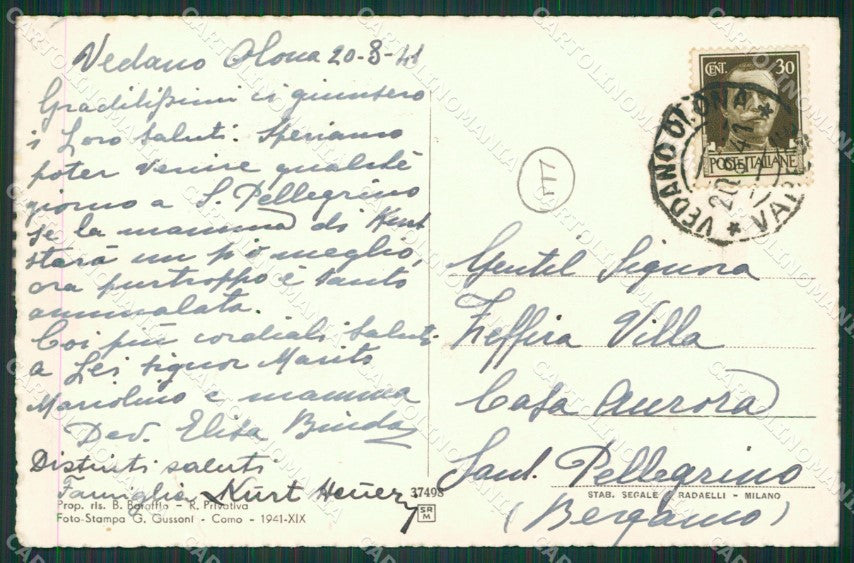 Vedano Olona 20-8-41
Graditissimi ci giunsero
i Loro saluti. Speriamo
poter venire qualche
giorno a S. Pellegrino
se la mamma di Kurt
starà un pò meglio,
ora purtroppo è tanto
ammalata.
Coi più cordiali saluti
a Lei signor Marito
Mariolino e mamma
Dev. Elisa Binda
Distinti saluti
Famiglia Kurt
Prop. ris. B. - R. Privativa
Foto-Stampa G. Gussoni - Como - 1941-XIX
37498
SR
M
CENT. 30
POSTE ITALIANE
VEDANO OLONA
VAR
Gentil Signora
Zeffira Villa
Casa Aurora
Sant. Pellegrino
STAB. SEGALE & RADAELLI - MILANO
(Bergamo)
CARTOLINOMANIA